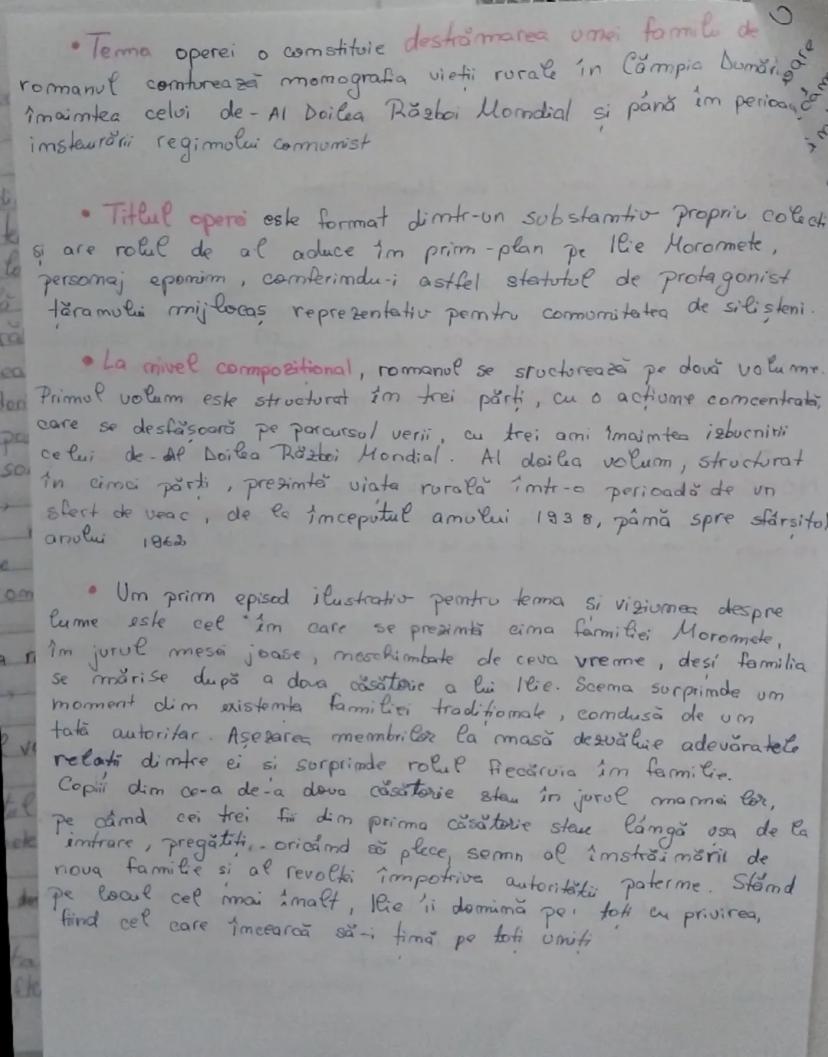 • Tema operei o constituie destrămarea unei familii de
romanul conturează monografia vieții rurale în Câmpia Dunării
înaintea celui de-Al Doilea Război Mondial și până în perioada
instaurării regimului comunist
• Titlul operei este format dintr-un substantiv propriu colecti
și are rolul de al aduce în prim-plan pe Ilie Moromete,
personaj eponim, conferindu-i astfel statutul de protagonist
țăranului mijlocaș reprezentativ pentru comunitatea de silișteni.
• La nivel compozițional, romanul se sructurează pe două volume.
Primul volum este structurat în trei părți, cu o acțiune concentrată,
care se desfășoară pe parcursul verii, cu trei ani înaintea izbucnirii
celui de-Al Doilea Război Mondial. Al doilea volum, structurat
în cinci părți, prezintă viața rurală într-o perioadă de un
sfert de veac, de la începutul anului 1938, până spre sfârșitul
anului 1962
• Un prim episod ilustrativ pentru tema și viziunea despre
lume este cel în care se prezintă cina familiei Moromete,
în jurul mesei joase, neschimbate de ceva vreme, deși familia
se mărise după a doua căsătorie a lui Ilie. Scena surprinde un
moment din existența familiei tradiționale, condusă de un
tată autoritar. Așezarea membrilor la masă dezvăluie adevăratele
relații dintre ei și surprinde rolul fiecăruia în familie.
Copiii din ce-a de-a doua căsătorie stau în jurul mamei lor,
pe când cei trei fii din prima căsătorie stau lângă ușa de la
intrare, pregătiți, oricând să plece, semn al înstrăinării de
noua familie și al revoltei împotriva autorității paterne. Stând
pe locul cel mai înalt, Ilie îi domină pe toți cu privirea,
fiind cel care încearcă să-i țină pe toți uniți